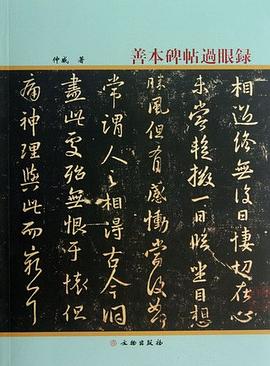 善本碑帖過眼録
仲威 著
相遇終無復日悽切在心
未嘗蹔掇一日臨坐目想
勝風但有感慟當復如
常謂人之相得古今洞
盡此處殆無恨于懷但
痛神理與此而窮耳
文物出版社